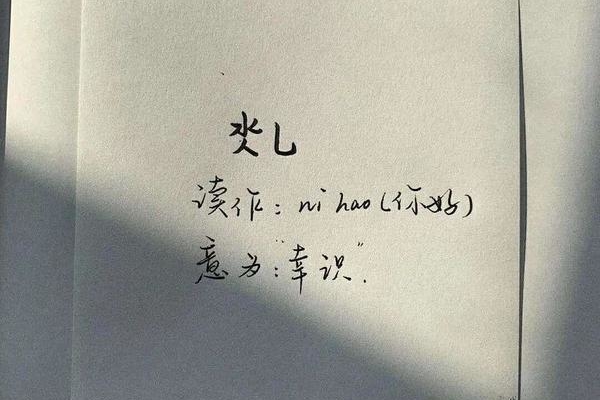 氼乚
读作：ni hao（你好）
意为：“幸识”.